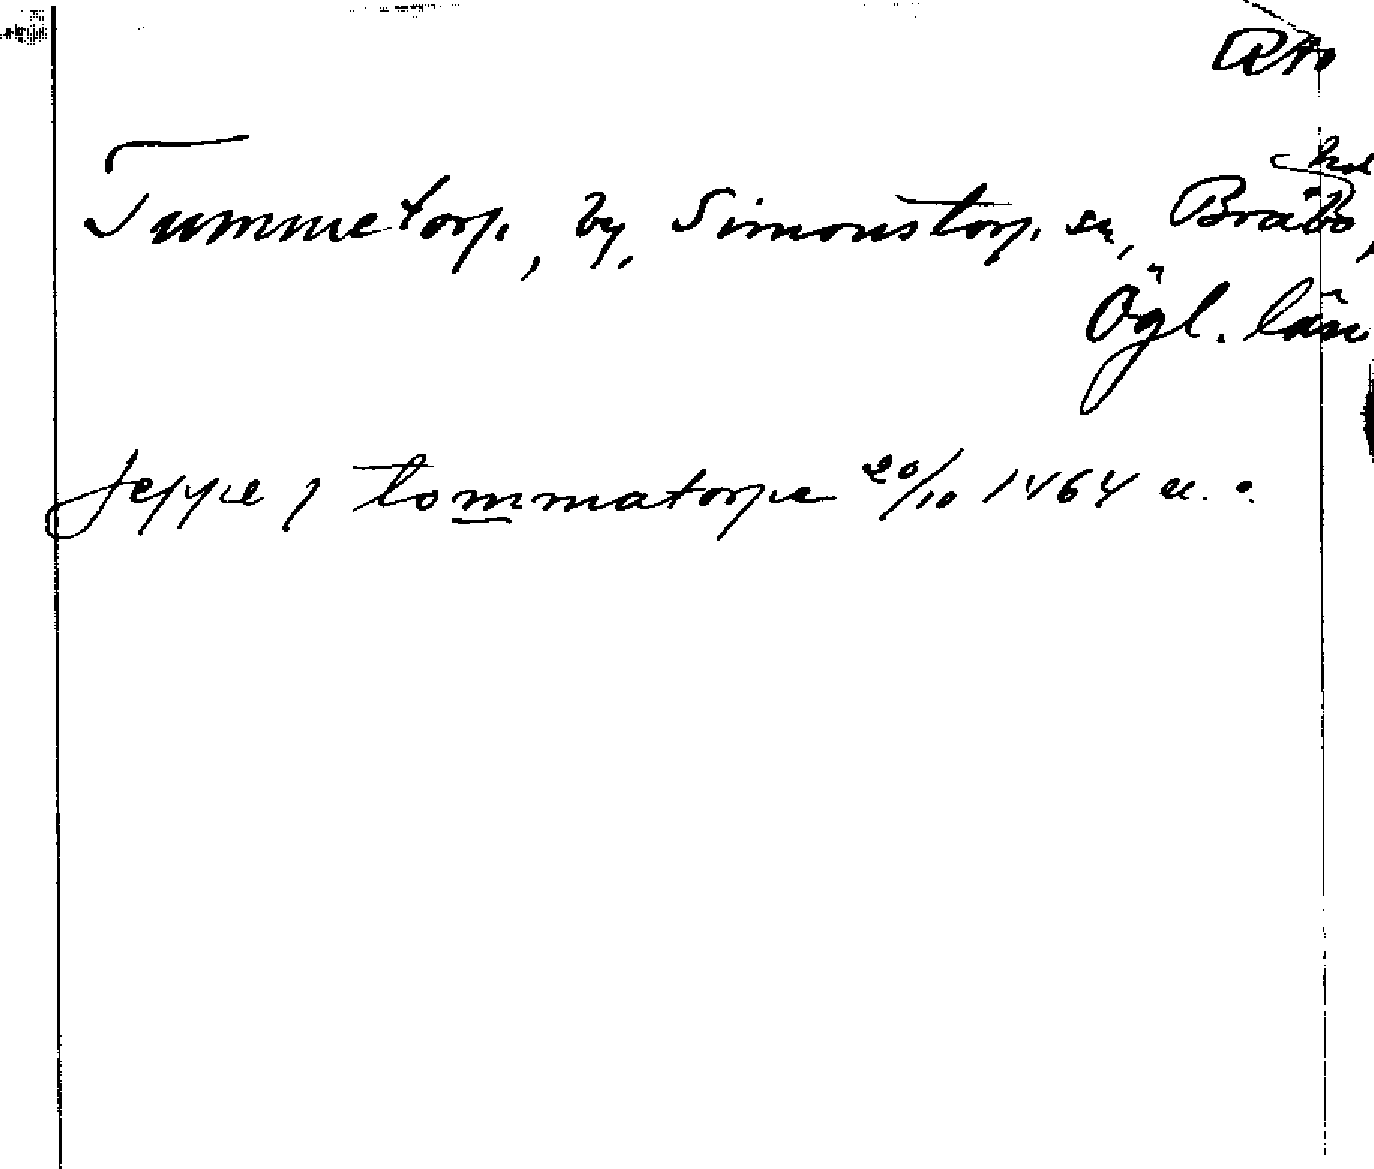 RAp
Tummetorp, by, Simonstorp sn, Bråbo hd,
Ögl. län
Jeppe j tommatorpe 20/10 1464 u. o.